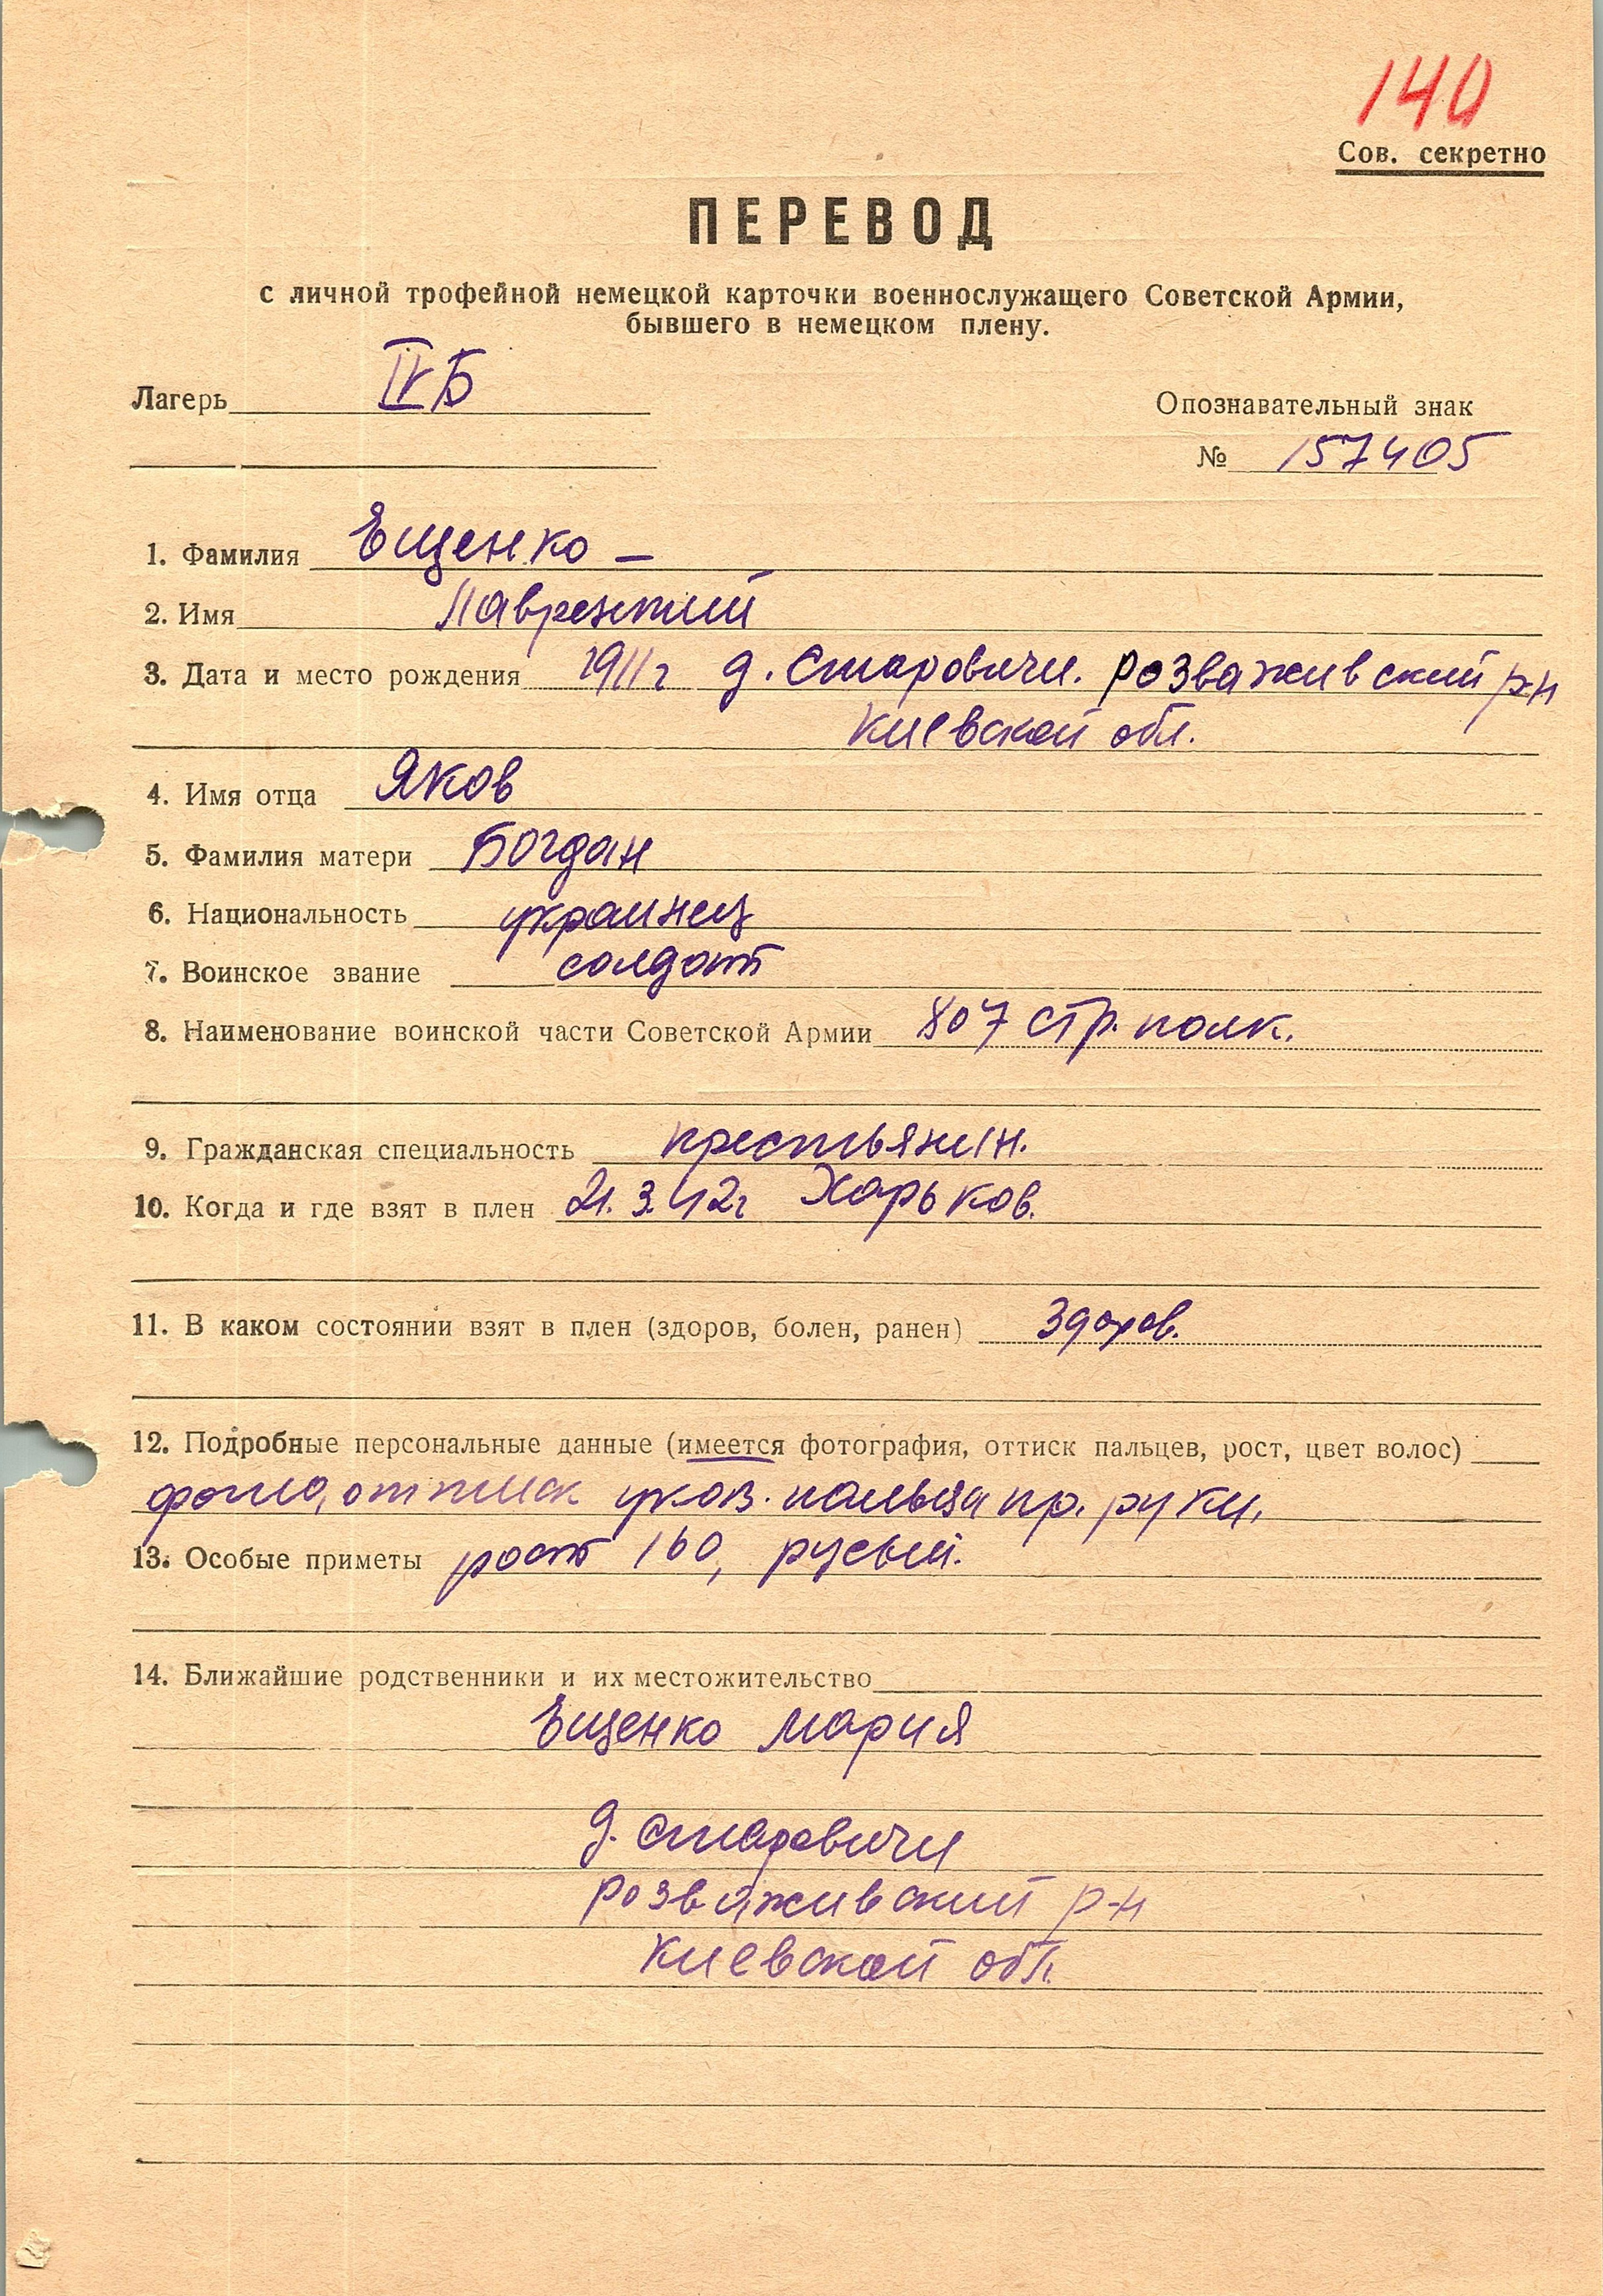 140
Сов. секретно
ПЕРЕВОД
с личной трофейной немецкой карточки военнослужащего Советской Армии,
бывшего в немецком плену.
Лагерь IVБ
Опознавательный знак
№ 157405
1. Фамилия Ещенко –
2. Имя Лаврентий
3. Дата и место рождения 1911г д. Старовичи. розваживский р-н
Киевской обл.
4. Имя отца Яков
5. Фамилия матери Богдан
6. Национальность украинец
7. Воинское звание солдат
8. Наименование воинской части Советской Армии 807 стр. полк.
9. Гражданская специальность крестьянин.
10. Когда и где взят в плен 21.3.42г Харьков.
11. В каком состоянии взят в плен (здоров, болен, ранен) здоров.
12. Подробные персональные данные (имеется фотография, оттиск пальцев, рост, цвет волос)
фото, оттиск указ. пальца пр. руки,
13. Особые приметы рост 160, русый.
14. Ближайшие родственники и их местожительство
Ещенко Мария
д. Старовичи
розваживский р-н
Киевской обл.